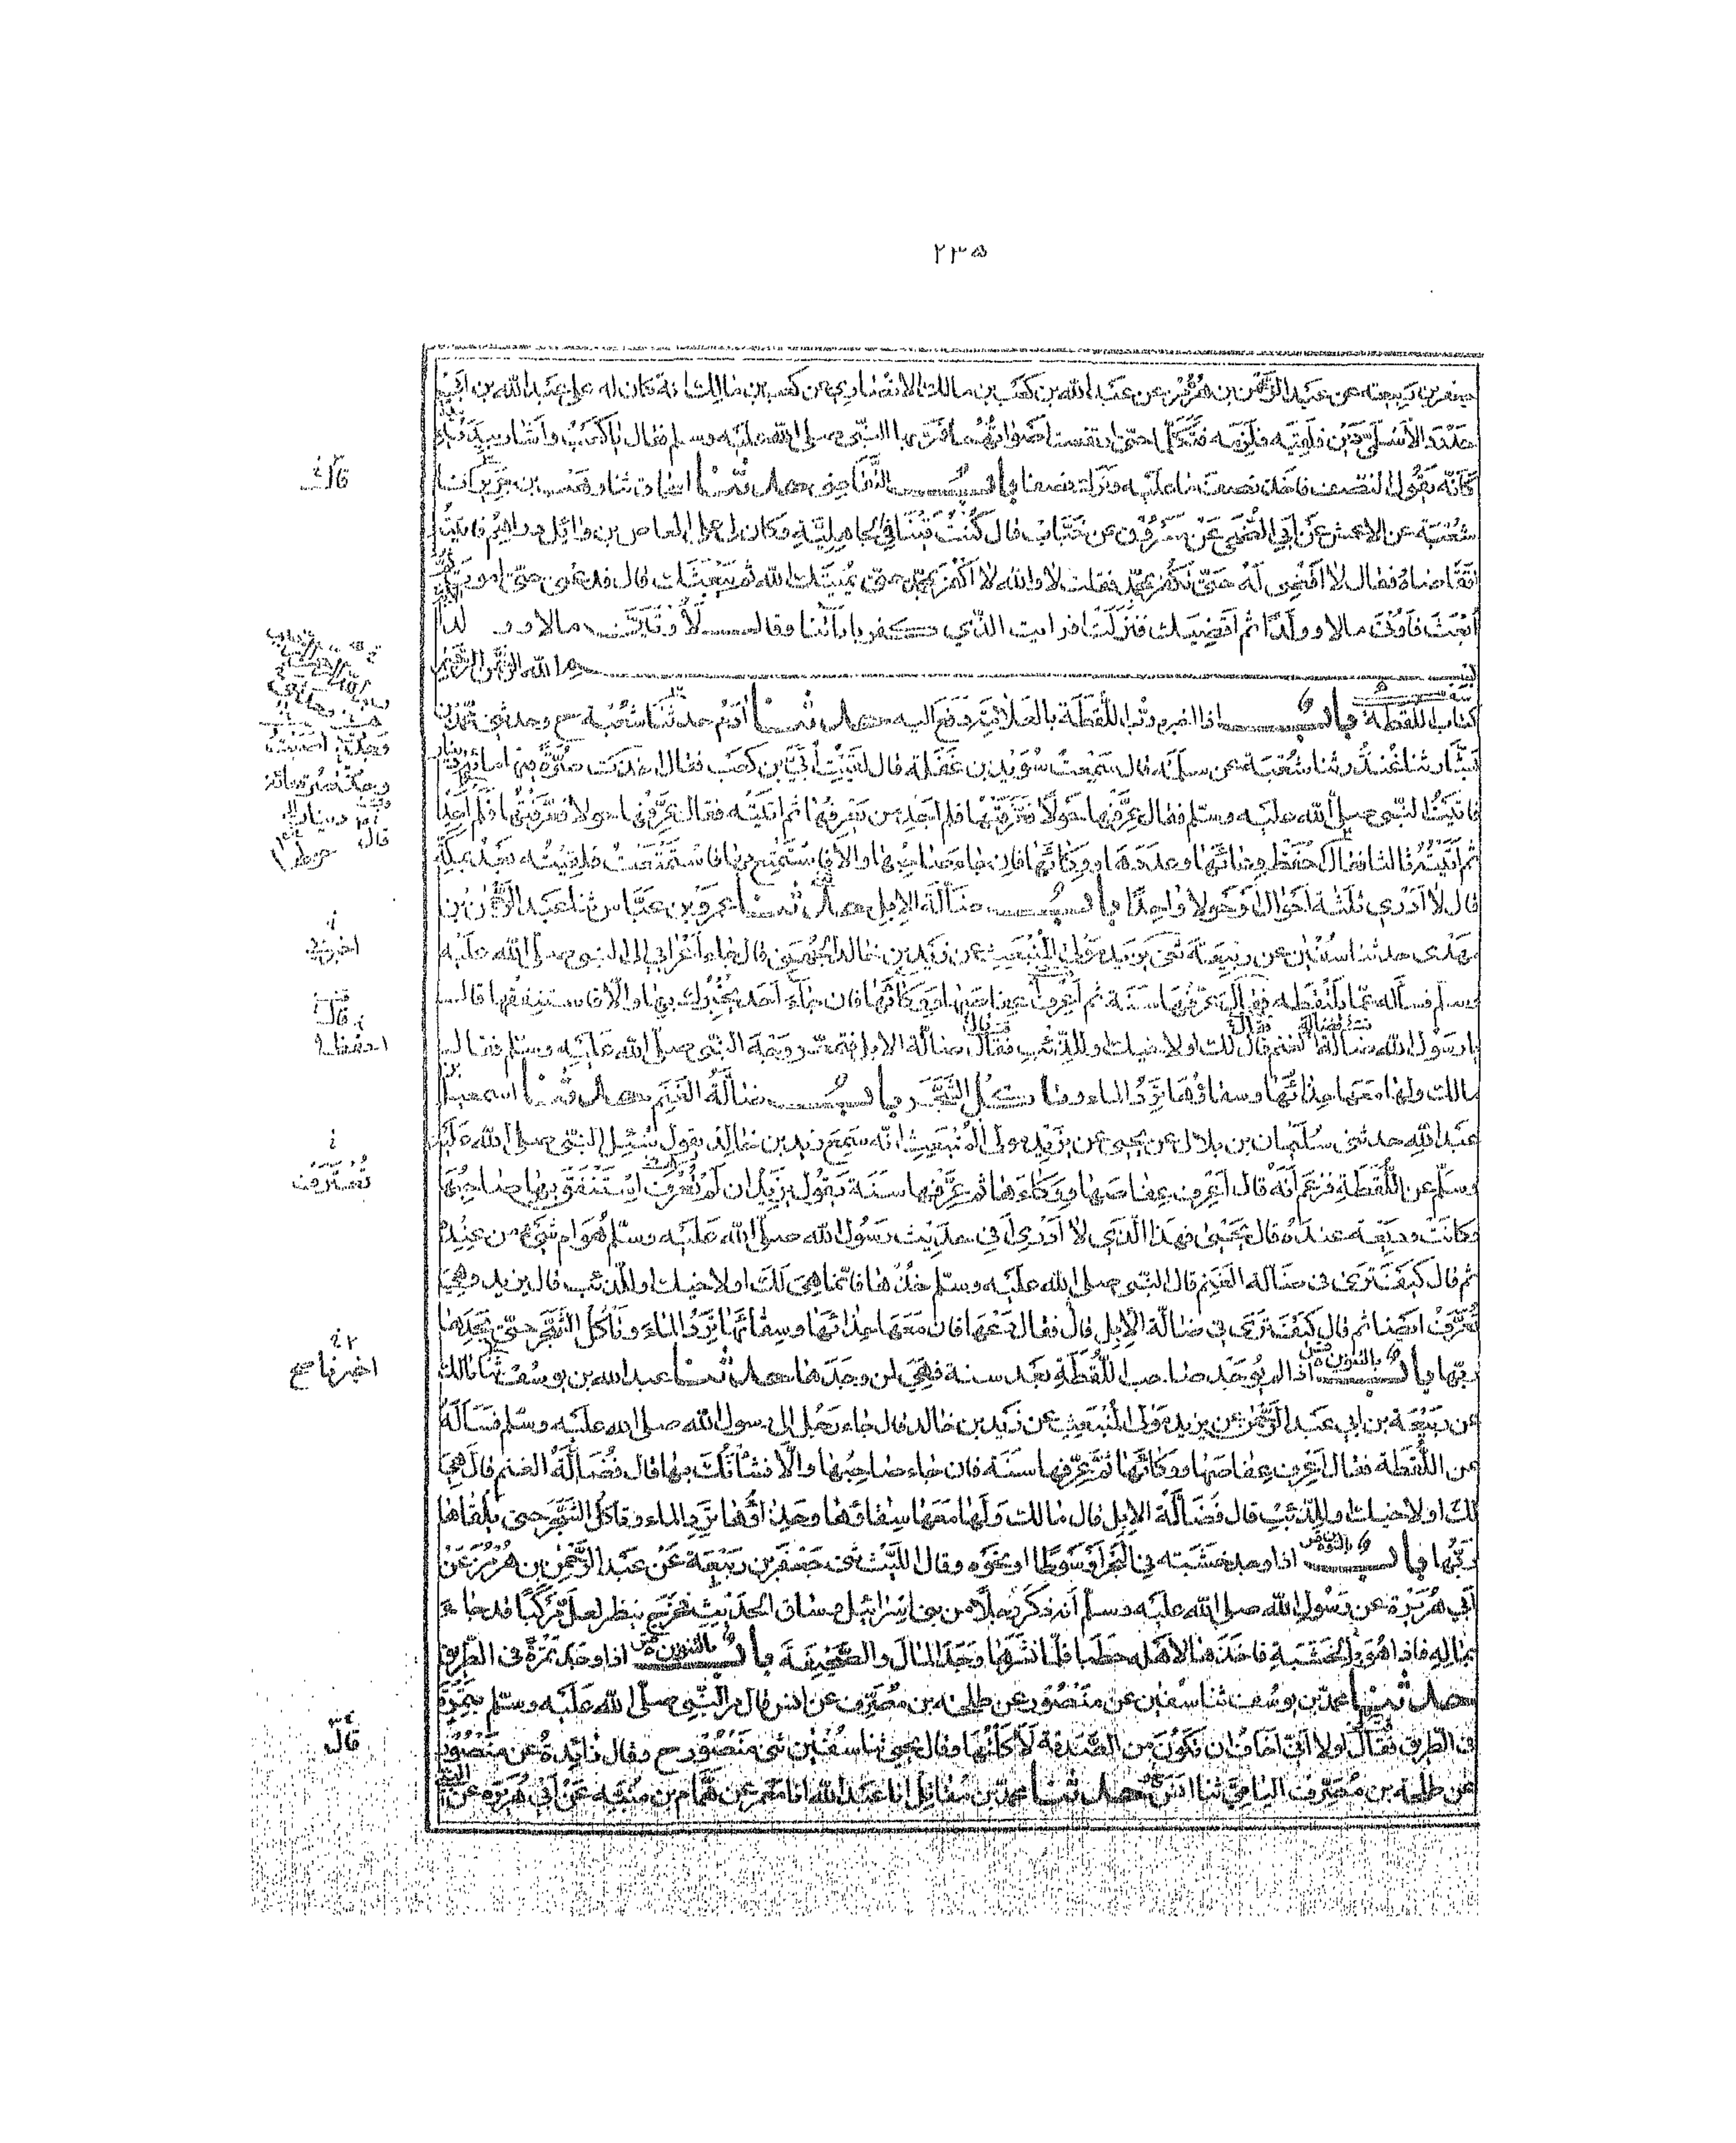 ٢٣٥
جعفر بن ربيعة عن عبد الرحمن بن هرمز عن عبد الله بن كعب بن مالك الانصاري عن كعب بن مالك انه كان له على عبد الله بن ابي
حدرد الاسلمي دين فلقيه فلزمه فتكلما حتى ارتفعت اصواتهما فمر بهما النبي صلى الله عليه وسلم فقال يا كعب واشار بيده
كانه يقول النصف فاخذ نصف ما عليه وترك نصفا باب التقاضي حدثنا اسحاق ثنا وهب بن جرير انا
شعبة عن الاعمش عن ابي الضحى عن مسروق عن خباب قال كنت قينا في الجاهلية وكان لي على العاص بن وائل دراهم فاتيته
اتقاضاه فقال لا اقضيك حتى تكفر بمحمد فقلت لا والله لا اكفر بمحمد حتى يميتك الله ثم يبعثك قال فدعني حتى اموت ثم
ابعث فاوتى مالا وولدا ثم اقضيك فنزلت افرايت الذي كفر باياتنا وقال لاوتين مالا وولدا
بسم الله الرحمن الرحيم
كتاب اللقطة باب اذا اخبره رب اللقطة بالعلامة دفع اليه حدثنا ادم حدثنا شعبة ح وحدثني محمد بن
بشار ثنا غندر ثنا شعبة عن سلمة قال سمعت سويد بن غفلة قال لقيت ابي بن كعب فقال اخذت صرة مائة دينار
فاتيت النبي صلى الله عليه وسلم فقال عرفها حولا فعرفتها فلم اجد من يعرفها ثم اتيته فقال عرفها حولا فعرفتها فلم اجد
ثم اتيته ثالثا فقال احفظ وعاءها وعددها ووكاءها فان جاء صاحبها والا فاستمتع بها فاستمتعت فلقيته بعد بمكة
قال لا ادري ثلثة احوال او حولا واحدا باب ضالة الابل حدثنا عمرو بن عباس ثنا عبد الرحمن بن
مهدى حدثنا سفين عن ربيعة ثنى يزيد مولى المنبعث عن زيد بن خالد الجهني قال جاء اعرابي الى النبي صلى الله عليه
وسلم فساله عما يلتقطه فقال عرفها سنة ثم اعرف عفاصها ووكاءها فان جاء احد يخبرك بها والا فاستنفقها قال
يا رسول الله ضالة الغنم قال لك او لاخيك او للذئب فقال ضالة الابل فتمعر وجه النبي صلى الله عليه وسلم فقال
مالك ولها معها حذاؤها وسقاؤها ترد الماء وتاكل الشجر باب ضالة الغنم حدثنا اسمعيل بن
عبد الله حدثني سليمان بن بلال عن يحيى عن يزيد مولى المنبعث انه سمع زيد بن خالد يقول سئل النبي صلى الله عليه
وسلم عن اللقطة فزعم انه قال اعرف عفاصها ووكاءها ثم عرفها سنة يقول يزيد ان لم تعرف استنفق بها صاحبها
وكانت وديعة عنده قال يحيى فهذا الذي لا ادري افي حديث رسول الله صلى الله عليه وسلم هو ام شيء من عنده
ثم قال كيف ترى فى ضالة الغنم قال النبي صلى الله عليه وسلم خذها فانما هي لك او لاخيك او للذئب قال يزيد وهي
تعرف ايضا ثم قال كيف ترى فى ضالة الابل قال فقال دعها فان معها حذاءها وسقاءها ترد الماء وتاكل الشجر حتى يجدها
ربها باب بالتنوين اذا لم يوجد صاحب اللقطة بعد سنة فهي لمن وجدها حدثنا عبد الله بن يوسف ثنا مالك
عن ربيعة بن ابي عبد الرحمن عن يزيد مولى المنبعث عن زيد بن خالد قال جاء رجل الى رسول الله صلى الله عليه وسلم فساله
عن اللقطة فقال اعرف عفاصها ووكاءها ثم عرفها سنة فان جاء صاحبها والا فشانك بها قال فضالة الغنم قال هي
لك او لاخيك او للذئب قال فضالة الابل قال مالك ولها معها سقاؤها وحذاؤها ترد الماء وتاكل الشجر حتى يلقاها
ربها باب بالتنوين اذا وجد خشبة في البحر او سوطا او نحوه وقال الليث ثنى جعفر بن ربيعة عن عبد الرحمن بن هرمز عن
ابي هريرة عن رسول الله صلى الله عليه وسلم انه ذكر رجلا من بني اسرائيل وساق الحديث فخرج ينظر لعل مركبا قد جاء
بماله فاذا هو بالخشبة فاخذها لاهله حطبا فلما نشرها وجد المال والصحيفة باب بالتنوين اذا وجد تمرة فى الطريق
حدثنا محمد بن يوسف ثنا سفين عن منصور عن طلحة بن مصرف عن انس قال مر النبي صلى الله عليه وسلم بتمرة
فى الطريق فقال لولا انى اخاف ان تكون من الصدقة لاكلتها وقال يحيى ثنا سفين ثنى منصور ح وقال زائدة عن منصور
عن طلحة بن مصرف اليامي ثنا انس حدثنا محمد بن مقاتل انا عبد الله انا معمر عن همام بن منبه عن ابي هريرة عن النبي
قال
قال
اخبرني
قال
احفظ
تعترف
اخبرنا صح
قال